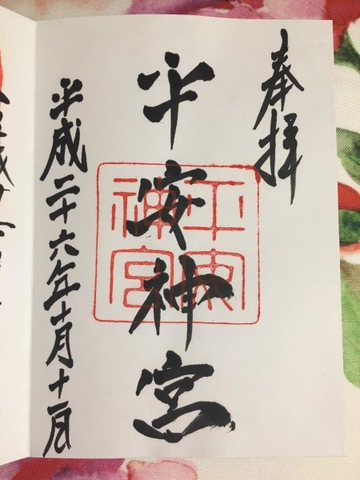 奉拝
平安神宮
平安神宮
平成二十六年十月十一日